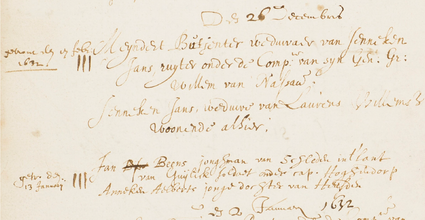 Den 26en Decembris
getrout den 17 feb. 1632
Meyndert Büsjenter weduwaer van Jenneken
Jans, ruyter onder de Comp. van syn Gen: Gr:
Willem van Nassau.
Jenneken Jans, weduwe van Laurens Willems
woonende alhier.
getr. den 13 January
Jan Beens jonghman van Schloden int lant
van Gulick soldat onder cap. Hoghendorp
Anneken Aelberts jonge dochter van Heusden
den 2 January 1632